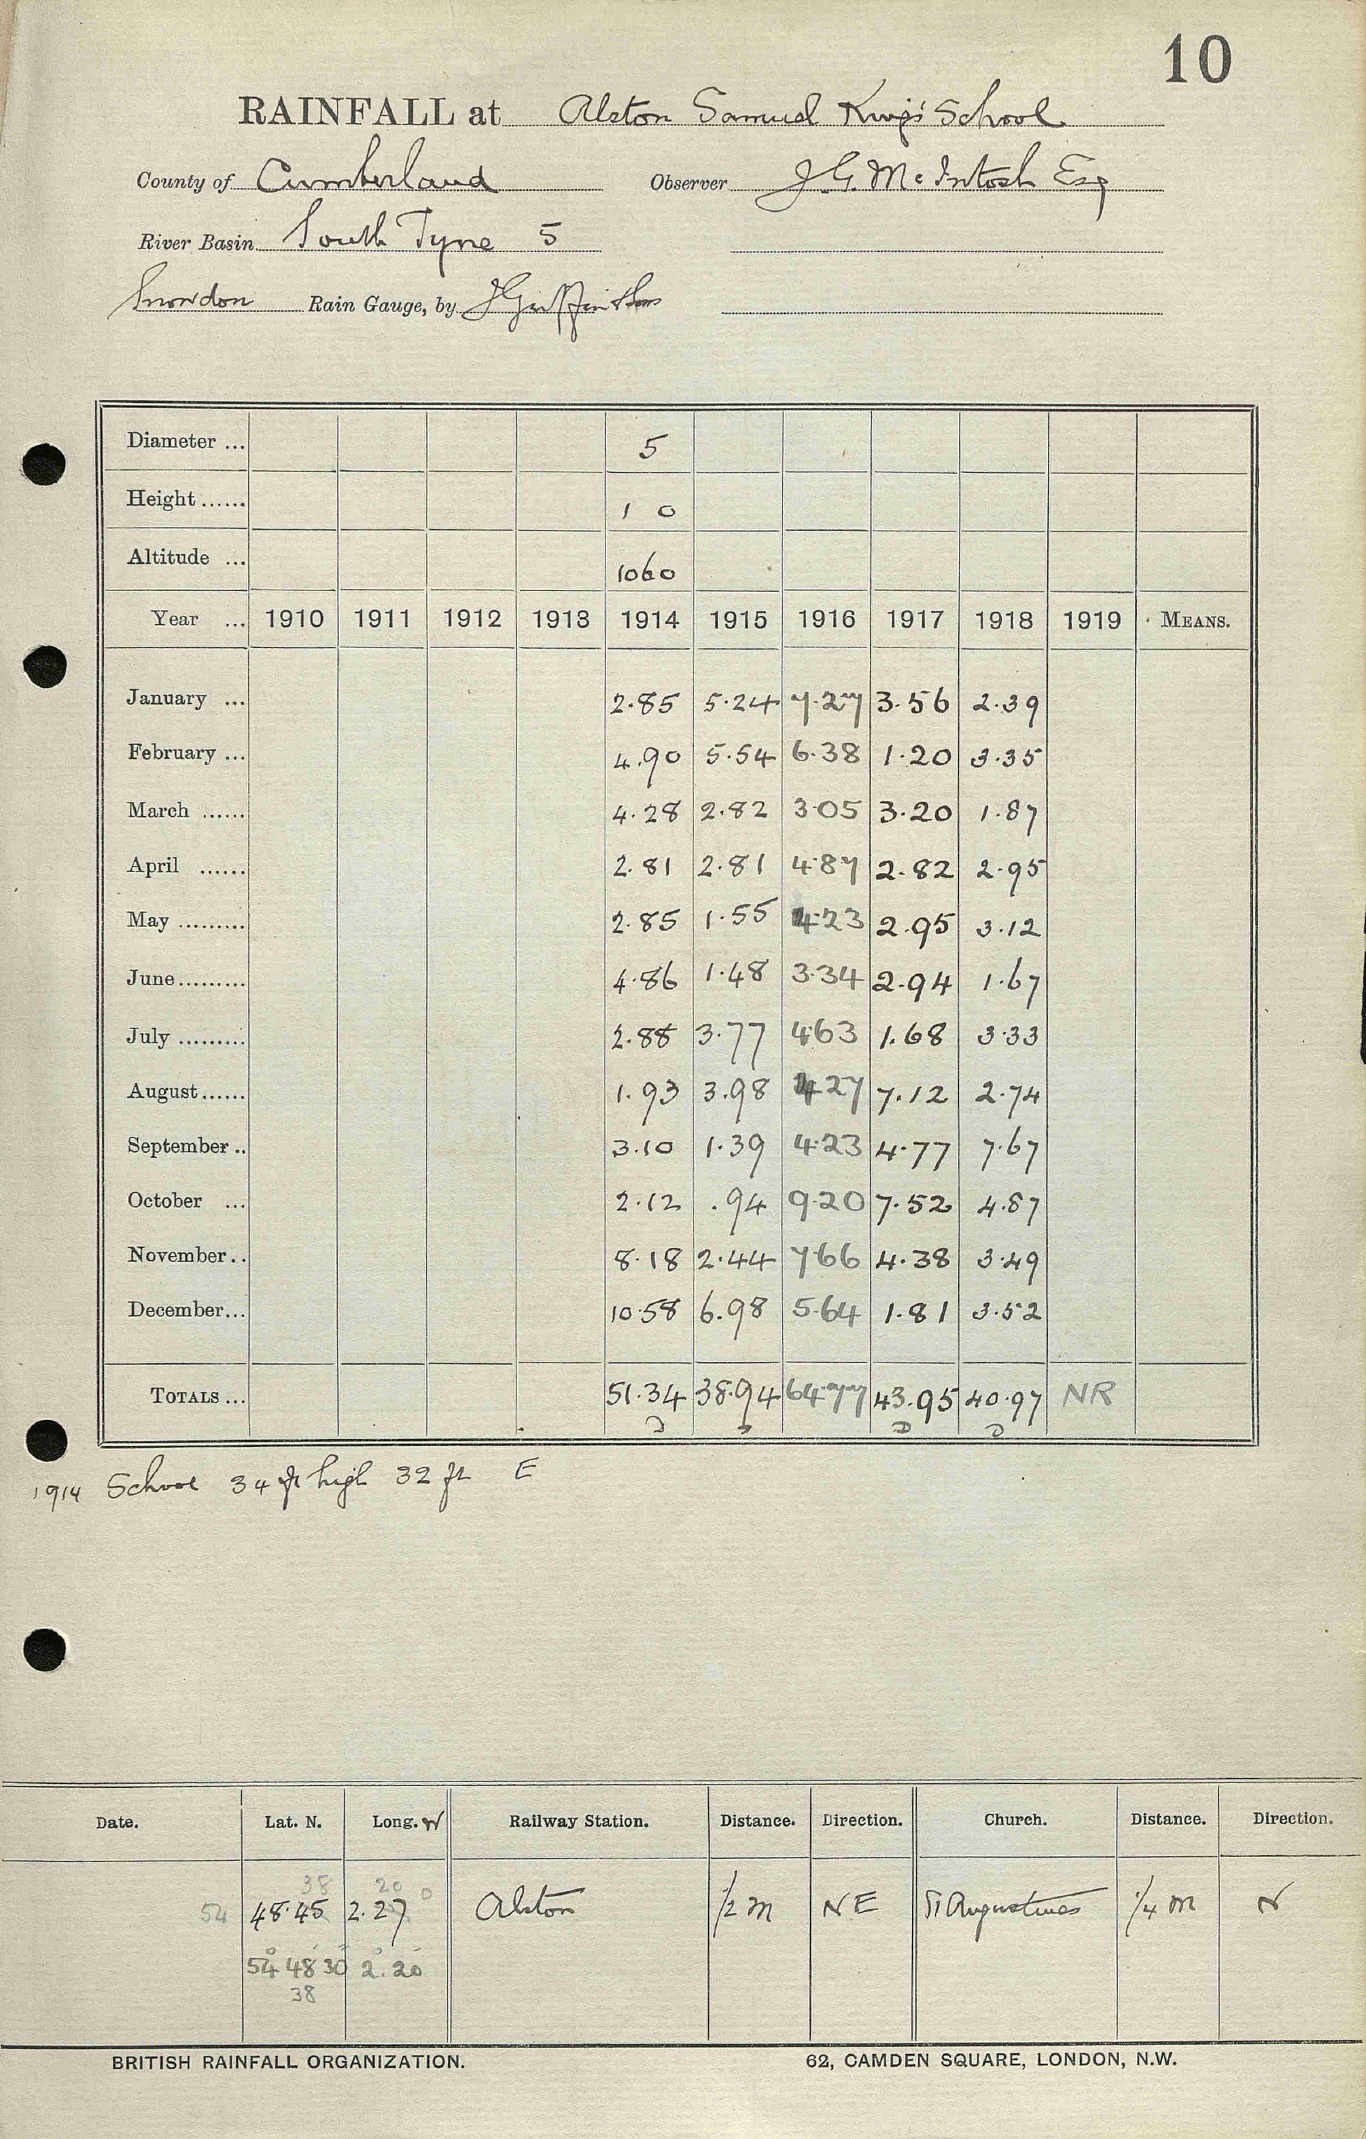 10
RAINFALL at Alston Samuel King's School
County of Cumberland Observer J.G. McIntosh Esq
River Basin South Tyne 5
Snowdon Rain Gauge, by J Griffin & Sons
Diameter ... 5
Height ...... 1 0
Altitude ... 1060
Year ... 1910 1911 1912 1913 1914 1915 1916 1917 1918 1919 MEANS.
January ... 2.85 5.24 7.27 3.56 2.39
February ... 4.90 5.54 6.38 1.20 3.35
March ...... 4.28 2.82 3.05 3.20 1.87
April ...... 2.81 2.81 4.87 2.82 2.95
May ......... 2.85 1.55 4.23 2.95 3.12
June ......... 4.86 1.48 3.34 2.94 1.67
July ......... 2.88 3.77 4.63 1.68 3.33
August ...... 1.93 3.98 4.27 7.12 2.74
September .. 3.10 1.39 4.23 4.77 7.67
October ... 2.12 .94 9.20 7.52 4.87
November .. 8.18 2.44 7.66 4.38 3.49
December ... 10.58 6.98 5.64 1.81 3.52
TOTALS ... 51.34 38.94 64.77 43.95 40.97 NR
1914 School 34 ft high 32 ft E
Date. Lat. N. Long. W Railway Station. Distance. Direction. Church. Distance. Direction.
38 20 0
54 48.45 2.27 Alston 1/2 m NE St Augustines 1/4 m N
54° 48' 30" 2° 20'
38
BRITISH RAINFALL ORGANIZATION. 62, CAMDEN SQUARE, LONDON, N.W.